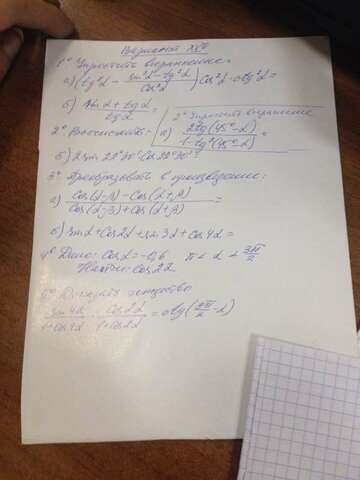 Вариант XXII
1° Упростить выражение:
а) (tg²α − (sin²α − tg²α)/Cos²α) Cos²α · ctgα =
б) (sinα + tgα)/tgα =
2° Упростить выражение
2° Вычислить: а) 2tg(45° − α)/(1 − tg²(45° − α)) =
б) 2 sin 22°30' Cos 22°30' =
3° Преобразовать в произведение:
а) (Cos(α−β) − Cos(α+β))/(Cos(α−β) + Cos(α+β)) =
б) sinα + Cos2α + sin3α + Cos4α =
4° Дано: Cosα = −0,6 π < α < 3π/2
Найти: Cos2α
5° Доказать тождество
sin4α/(1+cos4α) · cos2α/(1+cos2α) = ctg(3π/2 − α)